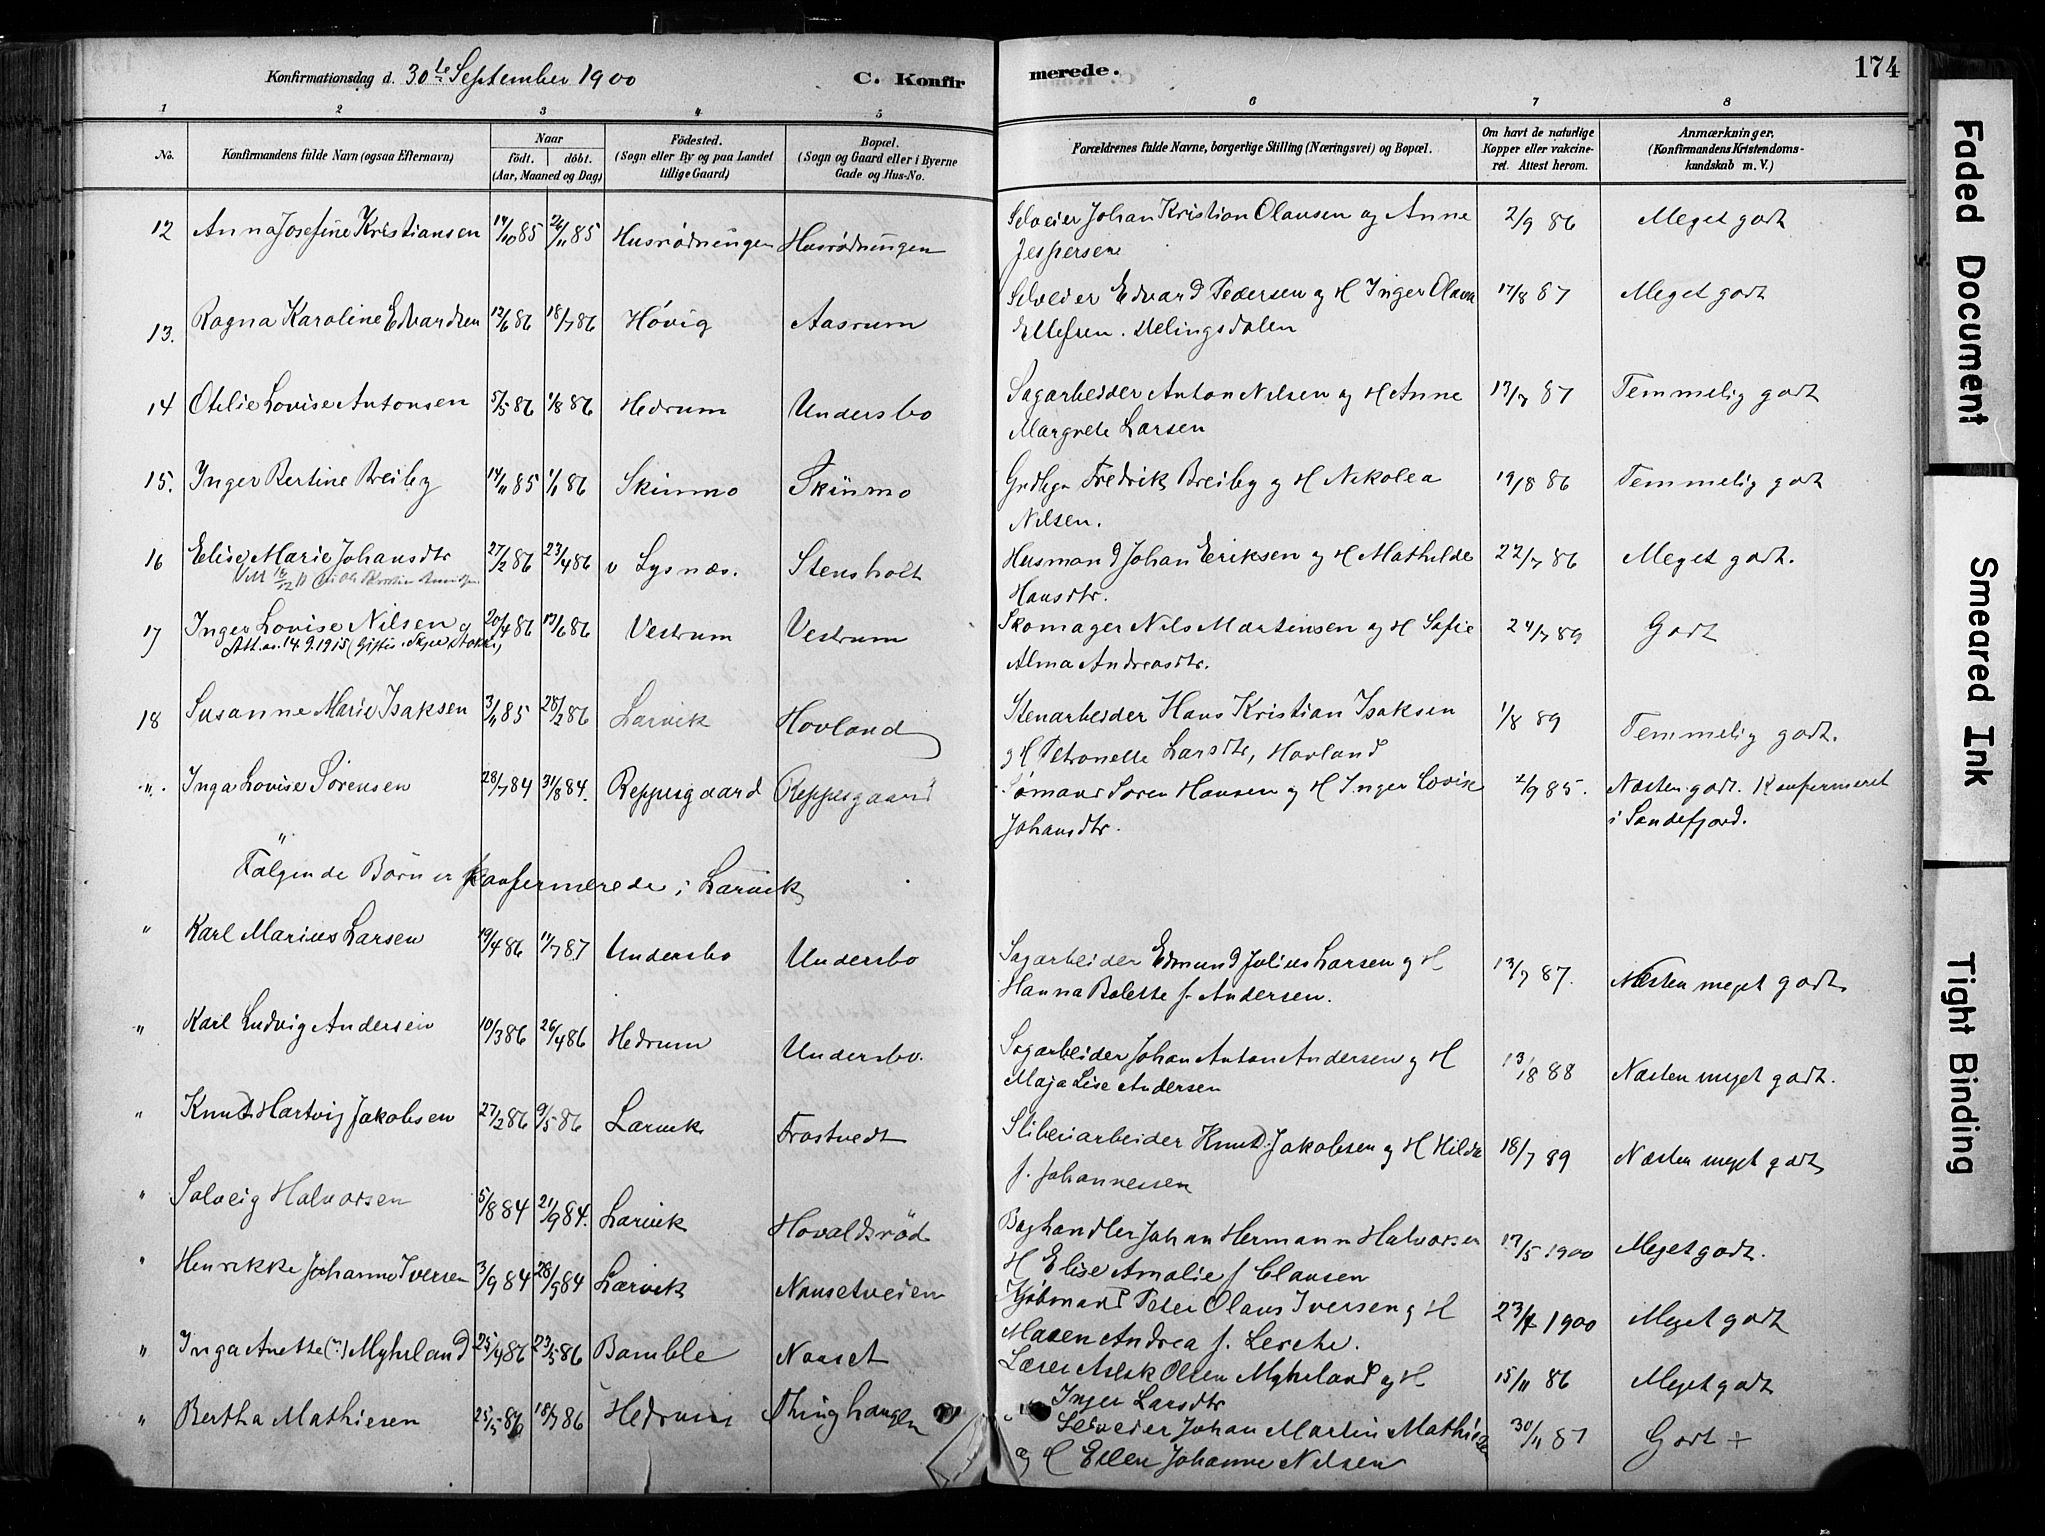 Konfirmationsdag d. 30te September 1900 C. Konfirmerede. 174
1 2 3 4 5 6 7 8
No. Konfirmandens fulde Navn (ogsaa Efternavn) Naar født. døbt. (Aar, Maaned og Dag) Födested. (Sogn eller By og paa Landet tillige Gaard) Bopæl. (Sogn og Gaard eller i Byerne Gade og Hus-No. Forældrenes fulde Navne, borgerlige Stilling (Næringsvei) og Bopæl. Om havt de naturlige Kopper eller vakcineret. Attest herom. Anmærkninger. (Konfirmandens Kristendomskundskab m. V.)
12 Anna Josefine Kristiansen 14/10 85 26/11 85 Husrødningen Husrødningen Selveier Johan Kristian Olausen og Anne 2/9 86 Meget godt
Jespersen
13. Ragna Karoline Edvardsen 12/6 86 18/7 86 Hövig Aasrum Selveier Edvard Pedersen og H Inger Olava 17/8 87 Meget godt
Ellefsen.
14 Otelie Lovise Antonsen 5/5 86 1/8 86 Hedrum Undersbo Sagarbeider Anton Nilsen og H Anne 13/7 87 Temmelig godt
Margrete Larsen
15. Inger Bertine Breiby 14/11 85 1/1 86 Skinmo Skinmo Grdbgr Fredrik Breiby og H Nikolea 19/8 86 Temmelig godt
Nilsen.
16 Elise Marie Johansdtr 27/2 86 23/4 86 v Lysnæs. Stensholt Husmand Johan Eriksen og H Mathilde 22/7 86 Meget godt.
Hansdtr.
17 Inger Lovise Nilsen 20/4 86 13/6 86 Vestrum Vestrum Skomager Nils Martinsen og H Sofie 24/7 89 Godt
Att. av. 14.9.1915 (Giftes i
Alma Andreasdtr.
18 Susanne Marie Isaksen 3/11 85 28/2 86 Larvik Hovland Stenarbeider Hans Kristian Isaksen 1/8 89 Temmelig godt.
og H Petronelle Larsdtr, Hovland
" Inga Lovise Sörensen 28/7 84 31/8 84. Reppesgaard Reppesgaard Sømand Soren Hansen og H Inger Lovise 2/9 85. Næsten godt. Konfermeret
Johansdtr. i Sandefjord.
"
Følgende Børn er konfermerede i Larvik
" Karl Marius Larsen 19/4 86 11/7 87 Undersbo Undersbo Sagarbeider Edmund Julius Larsen og H 13/7 87. Næsten meget godt
Hanna Bolette f. Andersen.
" Karl Ludvig Andersen 10/3 86 26/4 86 Hedrum Undersbo. Sagarbeider Johan Anton Andersen og H 13/8 88 Næsten meget godt.
Maja Lise Andersen
" Knut Hartvig Jakobsen 27/2 86 9/5 86 Larvik Frostvedt Sliberiarbeider Knut Jakobsen og H Hilda 18/7 89 Næsten meget godt
f. Johannessen
" Solveig Halvorsen 5/8 84 21/9 84. Larvik Hovaldsröd Boghandler Johan Hermann Halvorsen 17/5 1900 Meget godt.
H Elise Amalie f. Clausen
" Henrikke Johanne Iversen 3/9 84 28/9 84 Larvik Nansetveien Kjøbmand Peter Olaus Iversen og H 23/4 1900 Meget godt
Maren Andrea f. Lerche.
" Inga Anette Myhrland 25/4 86 23/5 86 Bamble Nanset Lærer Aslak Olsen Myhrland og H 15/11 86 Meget godt
Inger Larsdtr
" Bertha Mathisen 25/5 86 18/7 86 Hedrum Thinghaugen Selveier Johan Martin Mathisen 30/11 87 Godt +
og H Ellen Johanne Nilsen
Faded Document
Smeared Ink
Tight Binding